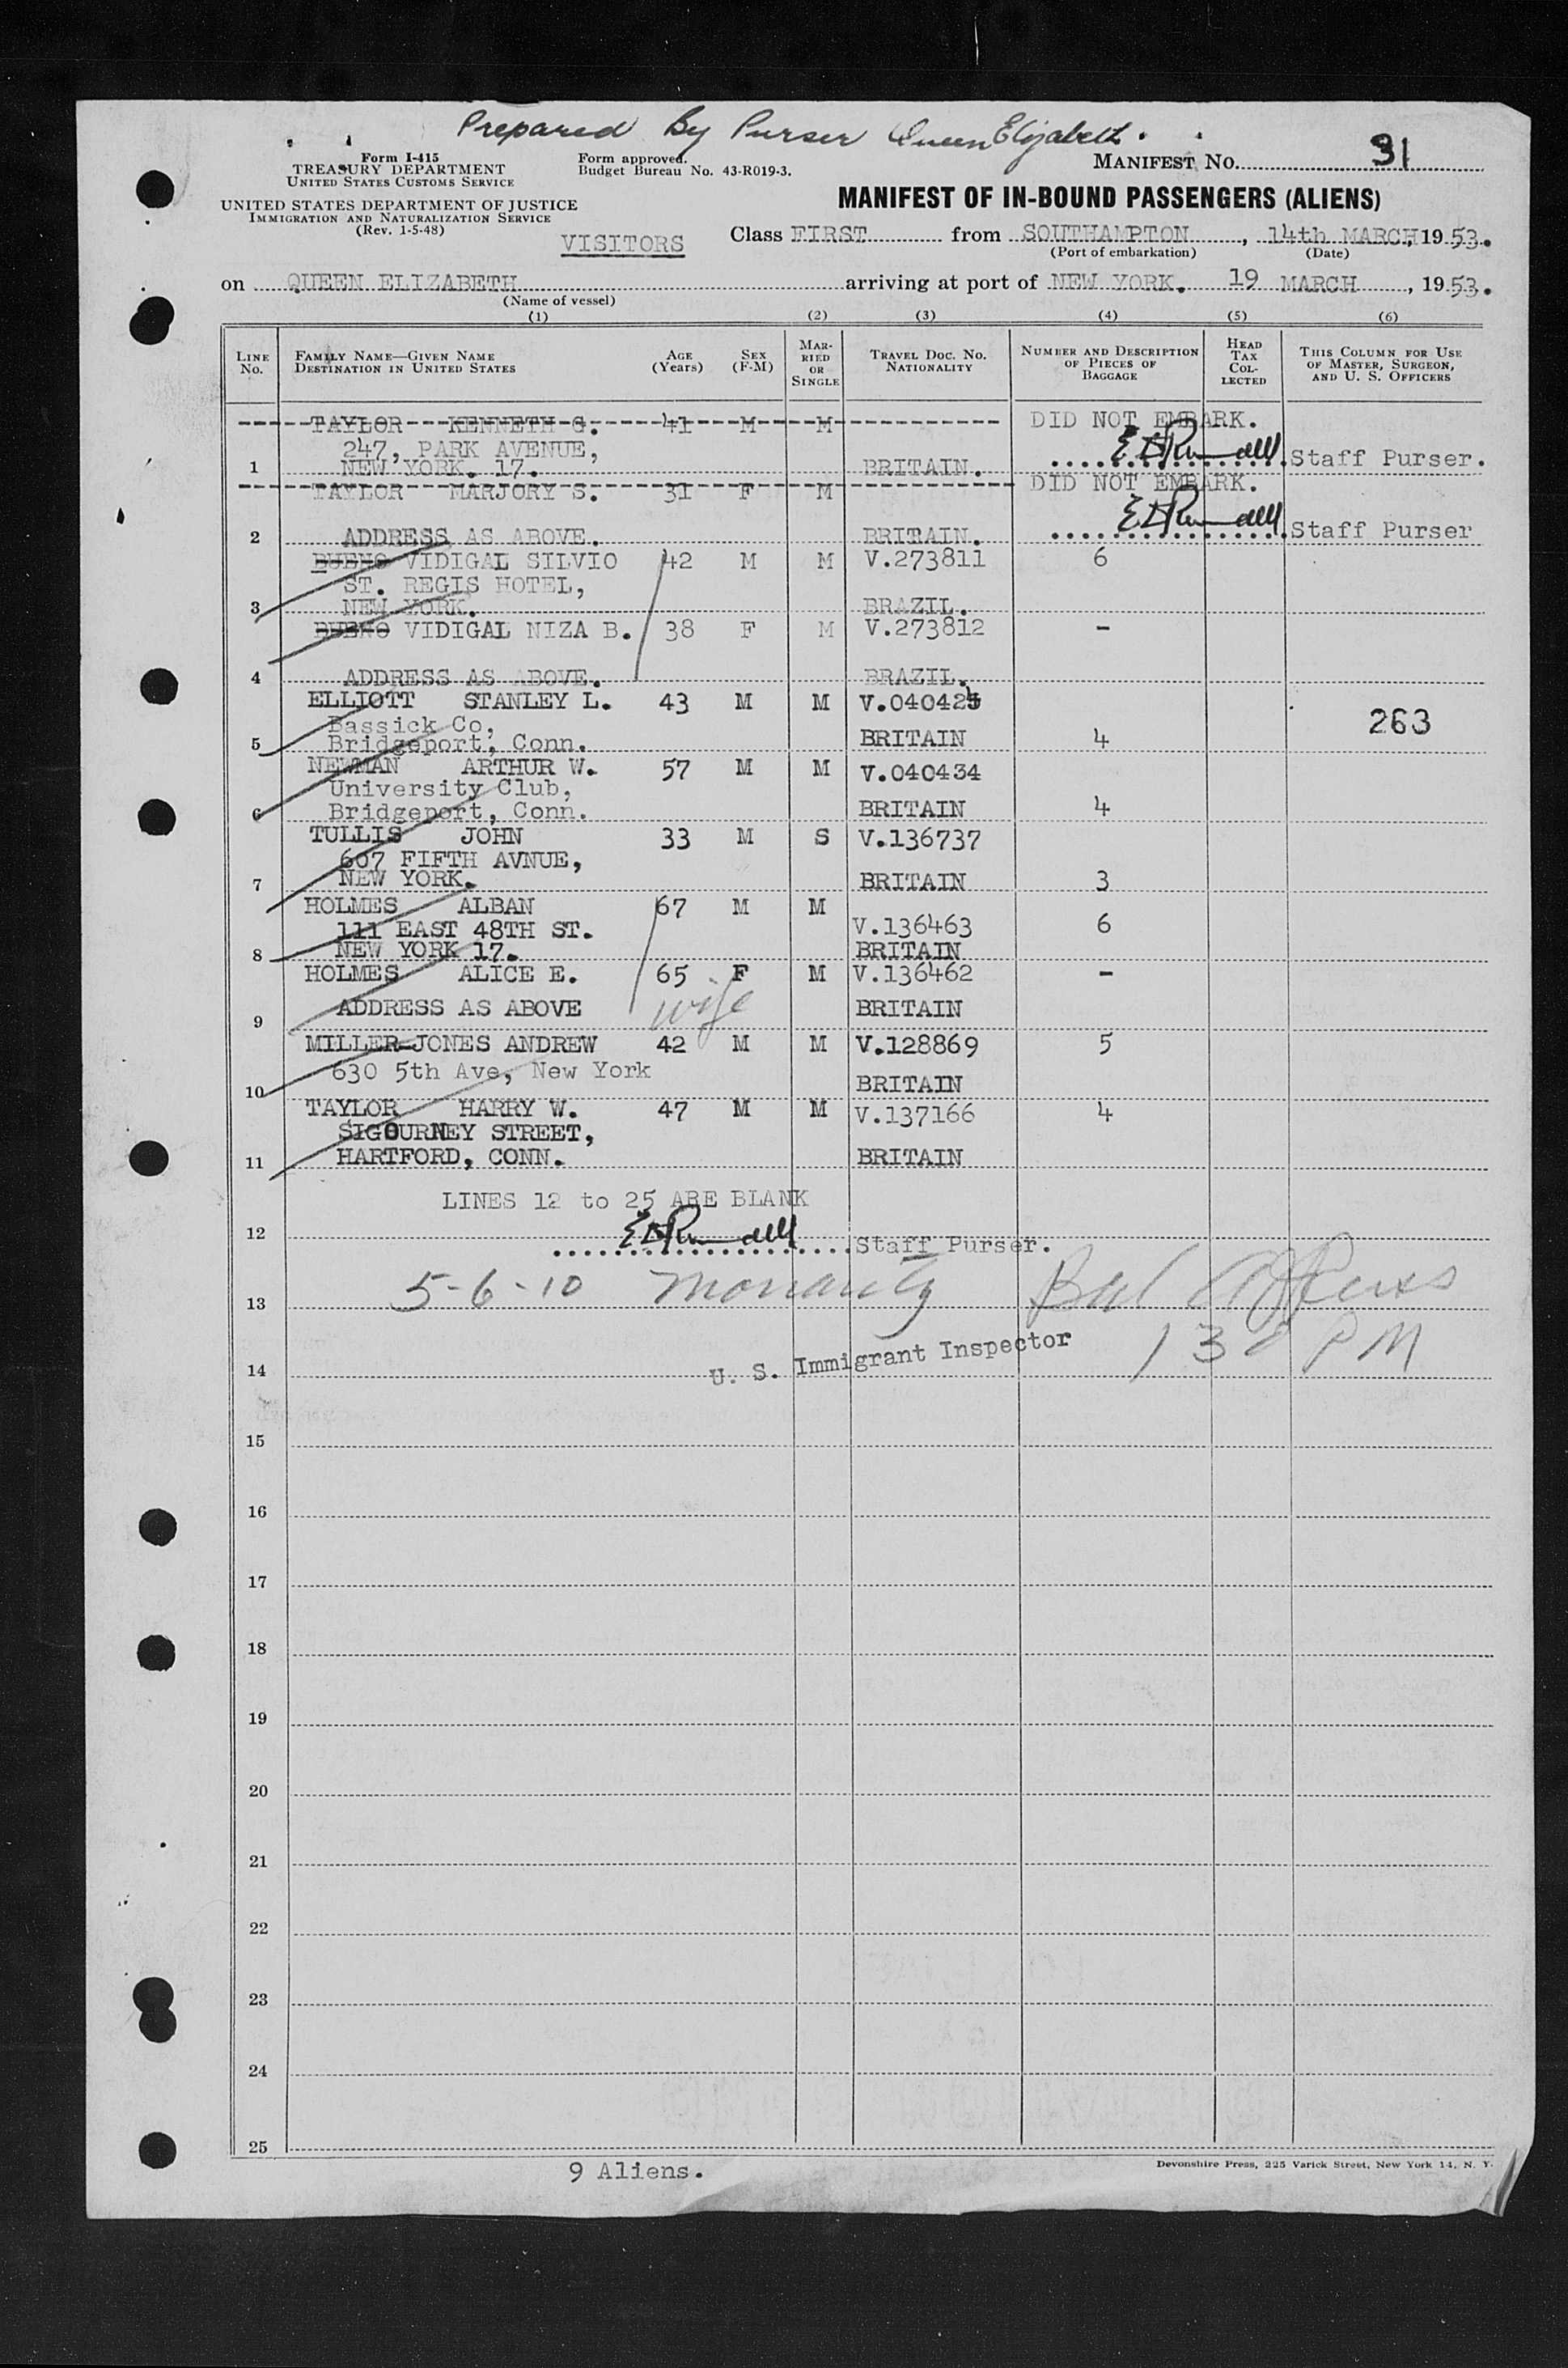 Prepared By Purser Queen Elizabeth.
Form I-415
TREASURY DEPARTMENT
UNITED STATES CUSTOMS SERVICE
UNITED STATES DEPARTMENT OF JUSTICE
IMMIGRATION AND NATURALIZATION SERVICE
(Rev. 1-5-48)
Form approved.
Budget Bureau No. 43-R019-3.
MANIFEST NO. 31
MANIFEST OF IN-BOUND PASSENGERS (ALIENS)
VISITORS Class FIRST from SOUTHAMPTON, 14th MARCH, 1953.
(Port of embarkation) (Date)
on QUEEN ELIZABETH arriving at port of NEW YORK. 19 MARCH, 1953.
(Name of vessel)
(1) (2) (3) (4) (5) (6)
LINE No. FAMILY NAME—GIVEN NAME DESTINATION IN UNITED STATES AGE (Years) SEX (F-M) MARRIED OR SINGLE TRAVEL DOC. NO. NATIONALITY NUMBER AND DESCRIPTION OF PIECES OF BAGGAGE HEAD TAX COLLECTED THIS COLUMN FOR USE OF MASTER, SURGEON, AND U. S. OFFICERS
TAYLOR KENNETH G. 41 M M DID NOT EMBARK.
247, PARK AVENUE,
1 NEW YORK. 17. BRITAIN. Staff Purser.
TAYLOR MARJORY S. 31 F M DID NOT EMBARK.
2 ADDRESS AS ABOVE. BRITAIN. Staff Purser
BUENO VIDIGAL SILVIO 42 M M V.273811 6
ST. REGIS HOTEL,
3 NEW YORK. BRAZIL.
BUENO VIDIGAL NIZA B. 38 F M V.273812 -
4 ADDRESS AS ABOVE. BRAZIL.
ELLIOTT STANLEY L. 43 M M
Bassick Co, 263
5 Bridgeport, Conn. BRITAIN 4
NEWMAN ARTHUR W. 57 M M V.040434
University Club,
6 Bridgeport, Conn. BRITAIN 4
TULLIS JOHN 33 M S V.136737
607 FIFTH AVNUE,
7 NEW YORK. BRITAIN 3
HOLMES ALBAN 67 M M
111 EAST 48TH ST. V.136463 6
8 NEW YORK 17. BRITAIN
HOLMES ALICE E. 65 F M V.136462 -
wife
9 ADDRESS AS ABOVE BRITAIN
MILLER-JONES ANDREW 42 M M V.128869 5
630 5th Ave, New York
10 BRITAIN
TAYLOR HARRY W. 47 M M V.137166 4
SIGOURNEY STREET,
11 HARTFORD, CONN. BRITAIN
LINES 12 to 25 ARE BLANK
12 Staff Purser.
13 5-6-10 Moriarity
14 U. S. Immigrant Inspector 130 PM
15
16
17
18
19
20
21
22
23
24
25
9 Aliens.
Devonshire Press, 225 Varick Street, New York 14, N. Y.